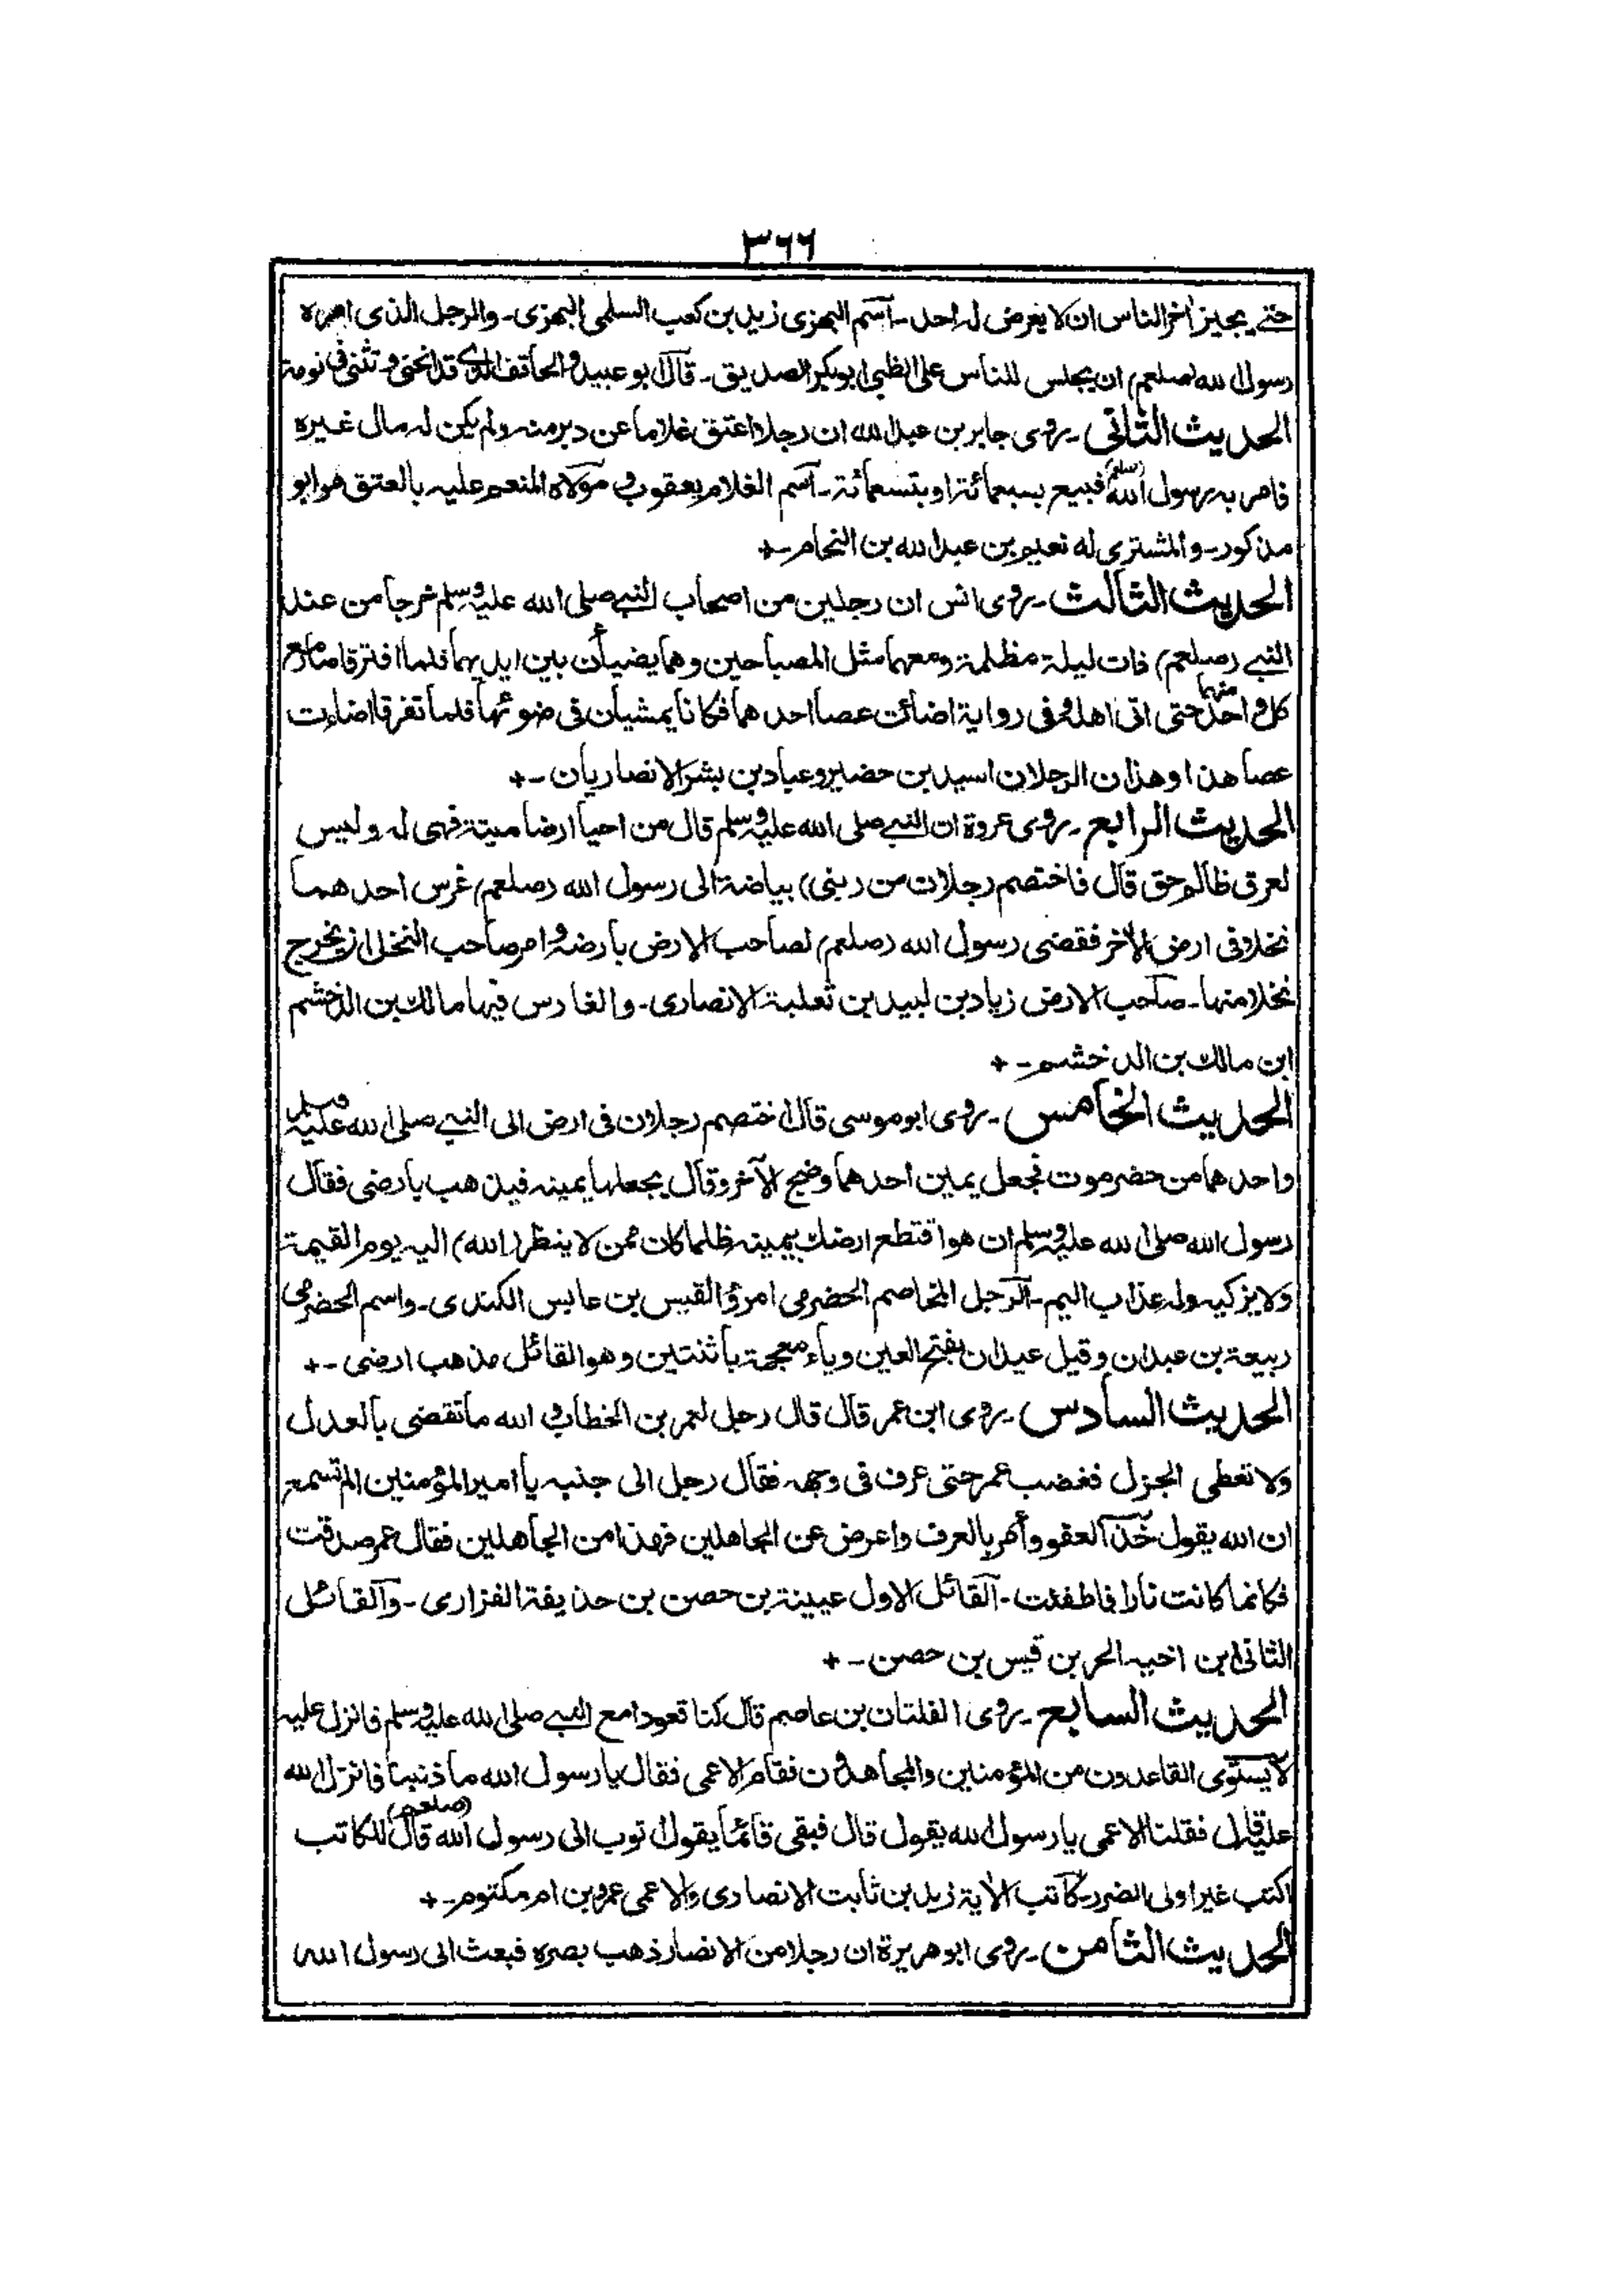 ٣٦٦
حتى يجيز اخر الناس ان لا يعرض له احد ـ اسم البهزى زيد بن كعب السلمى البهزى ـ والرجل الذى امره
رسول الله (صلعم) ان يجلس للناس على الظبى ابو بكر الصديق ـ قال ابو عبيد والحاقف الذى قد انحنى وتثنى فى نومه
الحديث الثانى ـ روى جابر بن عبد الله ان رجلا اعتق غلاما عن دبر منه ولم يكن له مال غيره
فامر به رسول الله (صلعم) فبيع بسبعمائة او بتسعمائة ـ اسم الغلام يعقوب ومولاه المنعم عليه بالعتق هو ابو
مذكور ـ والمشترى له نعيم بن عبد الله بن النحام ـ +
الحديث الثالث ـ روى انس ان رجلين من اصحاب النبى صلى الله عليه وسلم خرجا من عند
النبى (صلعم) ذات ليلة مظلمة ومعهما مثل المصباحين وهما يضيأن بين ايديهما فلما افترقا صار مع
كل واحد منهما حتى اتى اهله وفى رواية اضائت عصا احدهما فكانا يمشيان فى ضوئها فلما تفرقا اضاءت
عصا هذا وهذان الرجلان اسيد بن حضير وعباد بن بشر الانصاريان ـ +
الحديث الرابع ـ روى عروة ان النبى صلى الله عليه وسلم قال من احيا ارضا ميتة فهى له وليس
لعرق ظالم حق قال فاختصم رجلان من (بنى) بياضة الى رسول الله (صلعم) غرس احدهما
نخلا فى ارض الاخر فقضى رسول الله (صلعم) لصاحب الارض بارضه وامر صاحب النخل ان يخرج
نخلا منها ـ صاحب الارض زياد بن لبيد بن ثعلبة الانصارى ـ والغارس فيها مالك بن الدخشم
ابن مالك بن الدخشم ـ +
الحديث الخامس ـ روى ابو موسى قال اختصم رجلان فى ارض الى النبى صلى الله عليه وسلم
واحدهما من حضرموت فجعل يمين احدهما وضج الآخر وقال يجعلها يمينه فيذهب بارضى فقال
رسول الله صلى الله عليه وسلم ان هو اقتطع ارضك بيمينه ظلما كان ممن لا ينظر (الله) اليه يوم القيمة
ولا يزكيه وله عذاب اليم ـ الرجل المخاصم الحضرمى امرؤ القيس بن عابس الكندى ـ واسم الحضرمى
ربيعة بن عبدان وقيل عيدان بفتح العين وياء معجمة باثنتين وهو القائل مذهب ارضى ـ +
الحديث السادس ـ روى ابن عمر قال قال رجل لعمر بن الخطاب والله ما تقضى بالعدل
ولا تعطى الجزل فغضب عمر حتى عرف فى وجهه فقال رجل الى جنبه يا امير المؤمنين الم تسمع
ان الله يقول خذ العفو وأمر بالعرف واعرض عن الجاهلين فهذا من الجاهلين فقال عمر صدقت
فكانما كانت نارا فاطفئت ـ القائل الاول عيينة بن حصن بن حذيفة الفزارى ـ والقائل
الثانى ابن اخيه الحر بن قيس بن حصن ـ +
الحديث السابع ـ روى الفلتان بن عاصم قال كنا قعودا مع النبى صلى الله عليه وسلم فانزل عليه
لا يستوى القاعدون من المؤمنين والمجاهدون فقام الاعمى فقال يا رسول الله ما ذنبنا فانزل الله
عليه فقلنا الاعمى يا رسول الله يقول قال فبقى قائما يقول توب الى رسول الله (صلعم) قال للكاتب
اكتب غير اولى الضرر ـ كاتب الآية زيد بن ثابت الانصارى والاعمى عمرو بن ام مكتوم ـ +
الحديث الثامن ـ روى ابو هريرة ان رجلا من الانصار ذهب بصره فبعث الى رسول الله